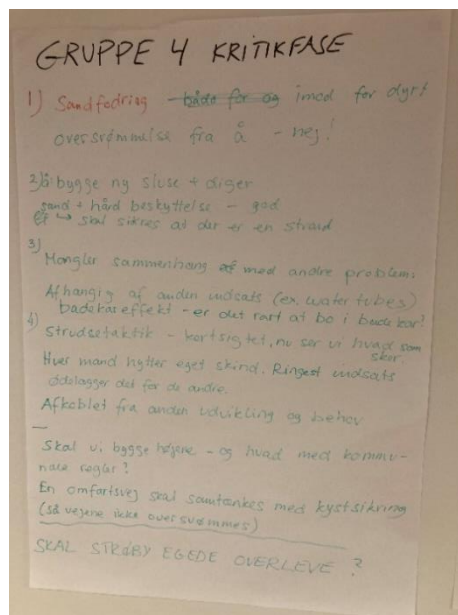 GRUPPE 4 KRITIKFASE
1) Sandfodring - både for og imod for dyrt
oversrømmelse fra å - nej!
2) bygge ny sluse + diger
sand + hård beskyttelse - god
skal sikres at der er en strand
3)
Mangler sammenhæng af med andre problem.
Afhængig af anden indsats (ex. water tubes)
badekareffekt - er det rart at bo i badekar?
4)
Strudsetaktik - kortsigtet, nu ser vi hvad som
sker.
Hver mand hytter eget skind. Ringest indsats
ødelægger det for de andre.
Afkoblet fra anden udvikling og behov
—
Skal vi bygge højene - og hvad med kommu-
nale regler?
En omfartsvej skal samtænkes med kystsikring
(så vejene ikke oversvømmes)
SKAL STRØBY EGEDE OVERLEVE ?